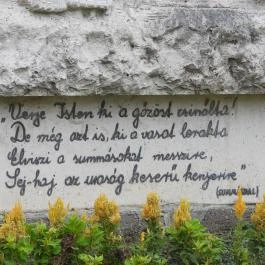 „Verje Isten ki a gőzöst csinálta!
De még azt is, ki a vasat lerakta
Elviszi a summásokat messzire,
Sej-haj az uraság keserű kenyerire”